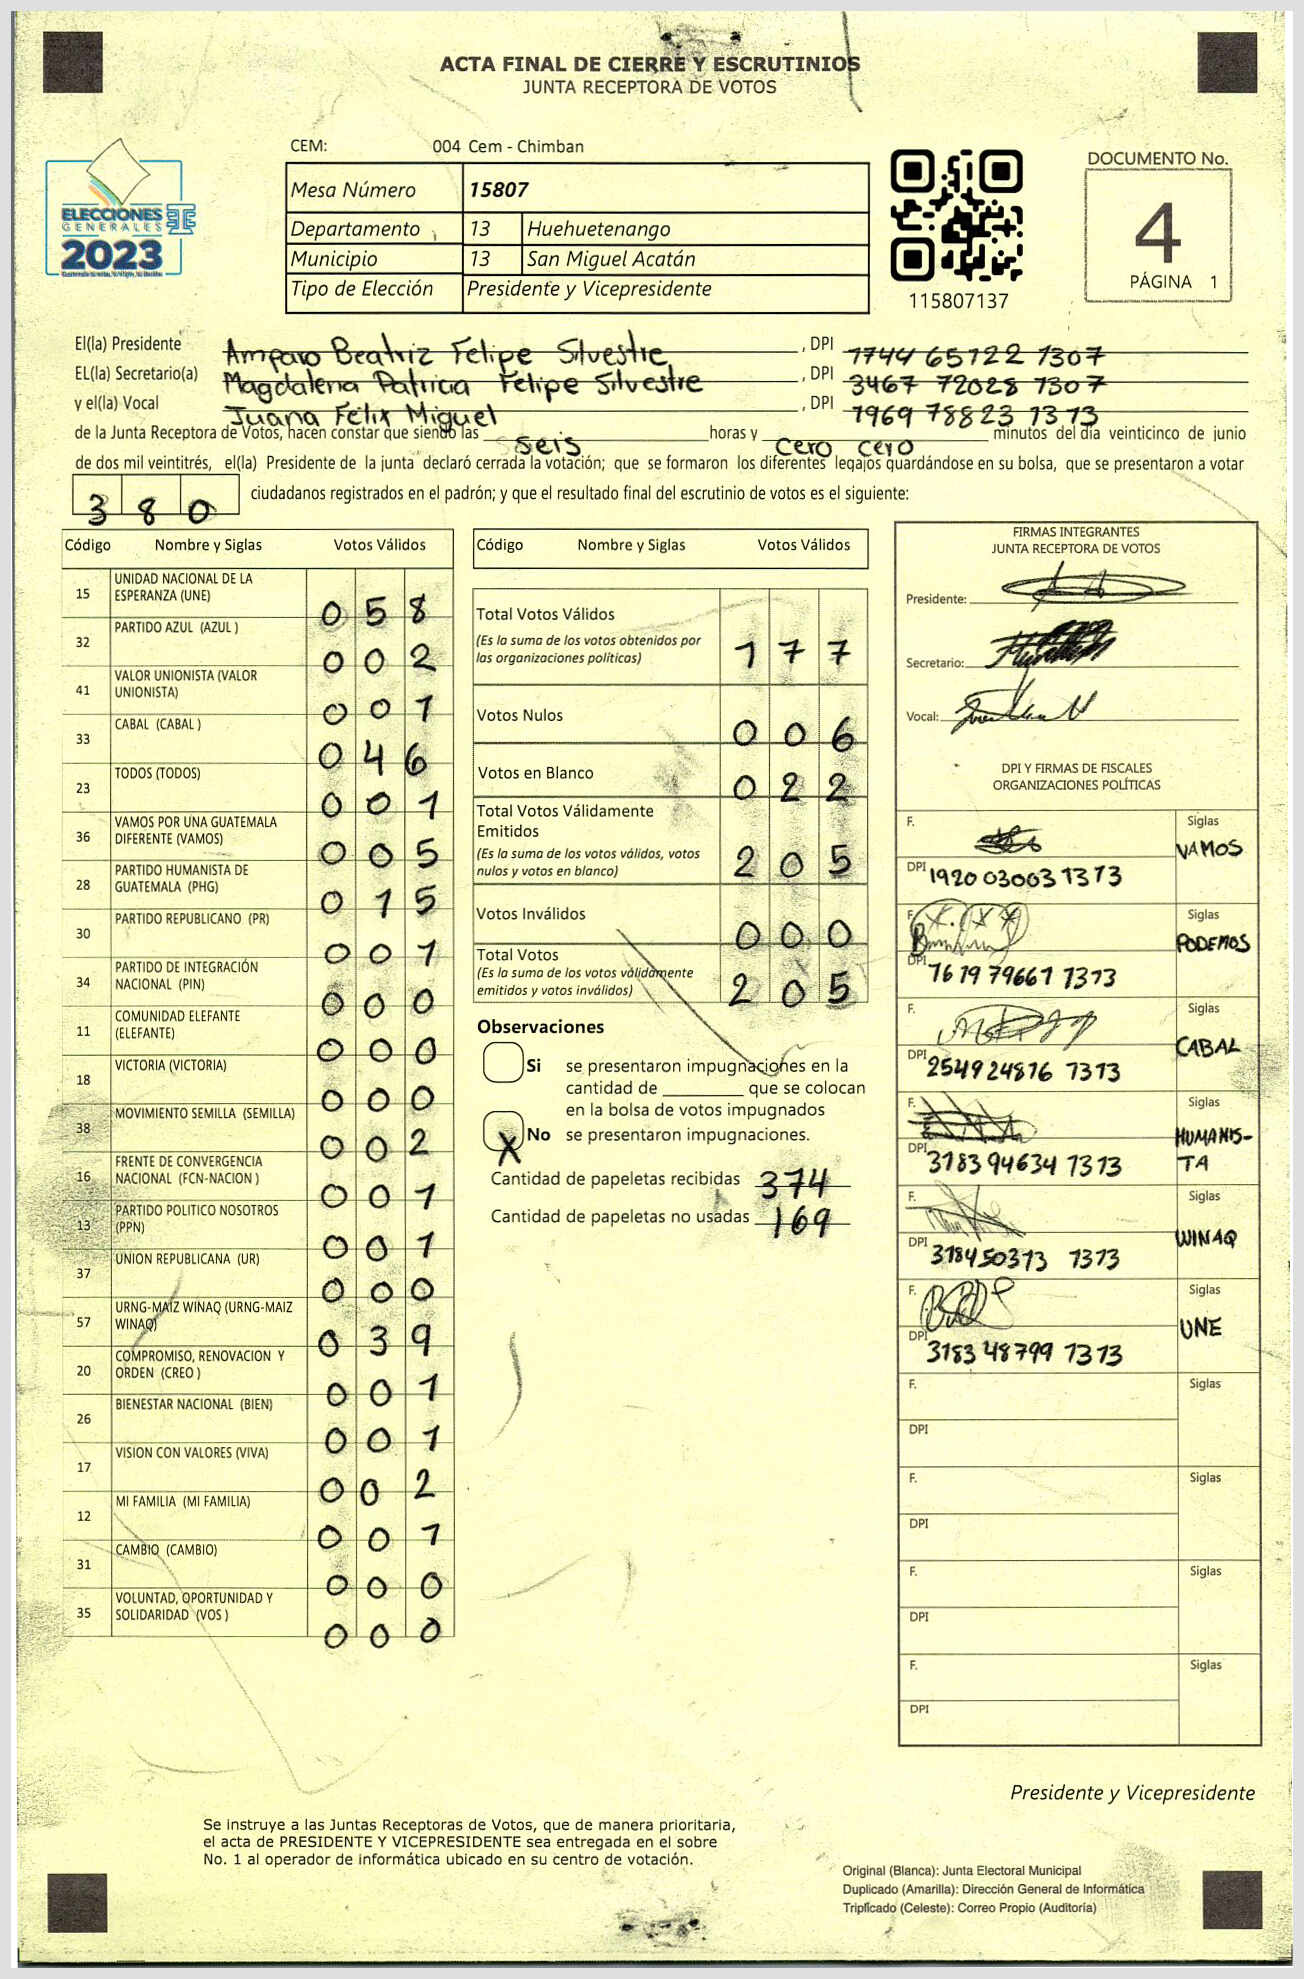 ACTA FINAL DE CIERRE Y ESCRUTINIOS
JUNTA RECEPTORA DE VOTOS
CEM: 004 Cem - Chimban
Mesa Número 15807
Departamento 13 Huehuetenango
Municipio 13 San Miguel Acatán
Tipo de Elección Presidente y Vicepresidente
ELECCIONES
GENERALES
2023
115807137
DOCUMENTO No.
4
PÁGINA 1
El(la) Presidente Amparo Beatriz Felipe Silvestre , DPI 1744 65122 1307
EL(la) Secretario(a) Magdalena Patricia Felipe Silvestre , DPI 3467 72028 1307
y el(la) Vocal Juana Felix Miguel , DPI 1969 78823 1313
de la Junta Receptora de Votos, hacen constar que siendo las seis horas y cero cero minutos del día veinticinco de junio
de dos mil veintitrés, el(la) Presidente de la junta declaró cerrada la votación; que se formaron los diferentes legajos guardándose en su bolsa, que se presentaron a votar
380 ciudadanos registrados en el padrón; y que el resultado final del escrutinio de votos es el siguiente:
Código Nombre y Siglas Votos Válidos
15 UNIDAD NACIONAL DE LA
ESPERANZA (UNE) 058
32 PARTIDO AZUL (AZUL ) 002
41 VALOR UNIONISTA (VALOR
UNIONISTA) 001
33 CABAL (CABAL ) 046
23 TODOS (TODOS) 001
36 VAMOS POR UNA GUATEMALA
DIFERENTE (VAMOS) 005
28 PARTIDO HUMANISTA DE
GUATEMALA (PHG) 015
30 PARTIDO REPUBLICANO (PR) 001
34 PARTIDO DE INTEGRACIÓN
NACIONAL (PIN) 000
11 COMUNIDAD ELEFANTE
(ELEFANTE) 000
18 VICTORIA (VICTORIA) 000
38 MOVIMIENTO SEMILLA (SEMILLA) 002
16 FRENTE DE CONVERGENCIA
NACIONAL (FCN-NACION ) 001
13 PARTIDO POLITICO NOSOTROS
(PPN) 001
37 UNION REPUBLICANA (UR) 000
57 URNG-MAIZ WINAQ (URNG-MAIZ
WINAQ) 039
20 COMPROMISO, RENOVACION Y
ORDEN (CREO ) 001
26 BIENESTAR NACIONAL (BIEN) 001
17 VISION CON VALORES (VIVA) 002
12 MI FAMILIA (MI FAMILIA) 001
31 CAMBIO (CAMBIO) 000
35 VOLUNTAD, OPORTUNIDAD Y
SOLIDARIDAD (VOS ) 000
Código Nombre y Siglas Votos Válidos
Total Votos Válidos
(Es la suma de los votos obtenidos por
las organizaciones políticas) 177
Votos Nulos 006
Votos en Blanco 022
Total Votos Válidamente
Emitidos
(Es la suma de los votos válidos, votos
nulos y votos en blanco) 205
Votos Inválidos 000
Total Votos
(Es la suma de los votos válidamente
emitidos y votos inválidos) 205
Observaciones
Si se presentaron impugnaciones en la
cantidad de ________ que se colocan
en la bolsa de votos impugnados
X No se presentaron impugnaciones.
Cantidad de papeletas recibidas 374
Cantidad de papeletas no usadas 169
FIRMAS INTEGRANTES
JUNTA RECEPTORA DE VOTOS
Presidente:
Secretario:
Vocal:
DPI Y FIRMAS DE FISCALES
ORGANIZACIONES POLÍTICAS
F. Siglas
VAMOS
DPI 1920 03003 1313
F. Siglas
PODEMOS
DPI 1619 79661 1313
F. Siglas
CABAL
DPI 2549 24816 1313
F. Siglas
HUMANIS-
TA
DPI 3183 94634 1313
F. Siglas
WINAQ
DPI 318450313 1313
F. Siglas
UNE
DPI 3183 48799 1313
F. Siglas
DPI
F. Siglas
DPI
F. Siglas
DPI
F. Siglas
DPI
Presidente y Vicepresidente
Se instruye a las Juntas Receptoras de Votos, que de manera prioritaria,
el acta de PRESIDENTE Y VICEPRESIDENTE sea entregada en el sobre
No. 1 al operador de informática ubicado en su centro de votación.
Original (Blanca): Junta Electoral Municipal
Duplicado (Amarilla): Dirección General de Informática
Triplicado (Celeste): Correo Propio (Auditoría)